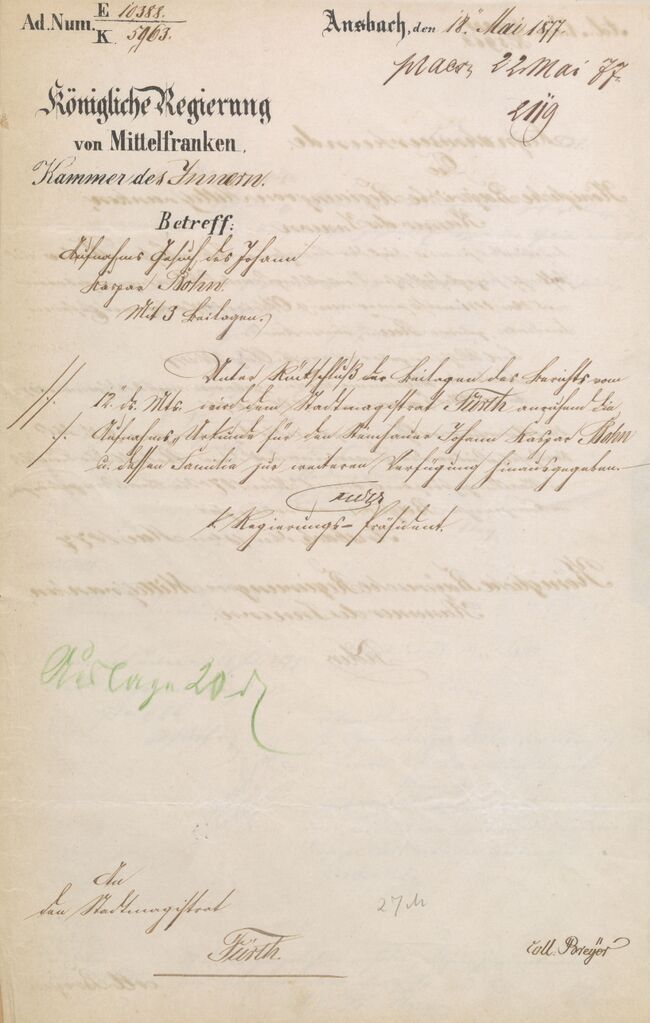 Ad. Num. E 10388.
K 5963.
Ansbach, den 18. Mai 1877.
praes. 22 Mai 77.
2119
Königliche Regierung
von Mittelfranken,
Kammer des Innern.
Betreff:
Aufnahms Gesuch des Johann
Kaspar Bohn.
Mit 3 Beilagen.
Unter Rückschluß der Beilagen des Berichts vom
12. ds. Mts. wird dem Stadtmagistrat Fürth anruhend die
Aufnahms-Urkunde für den Steinhauer Johann Kaspar Bohn
u. dessen Familie zur weiteren Verfügung hinausgegeben.
k. Regierungs-Präsident.
Auslage 20 d
An
den Stadtmagistrat
Fürth.
27 M
coll. Breyer